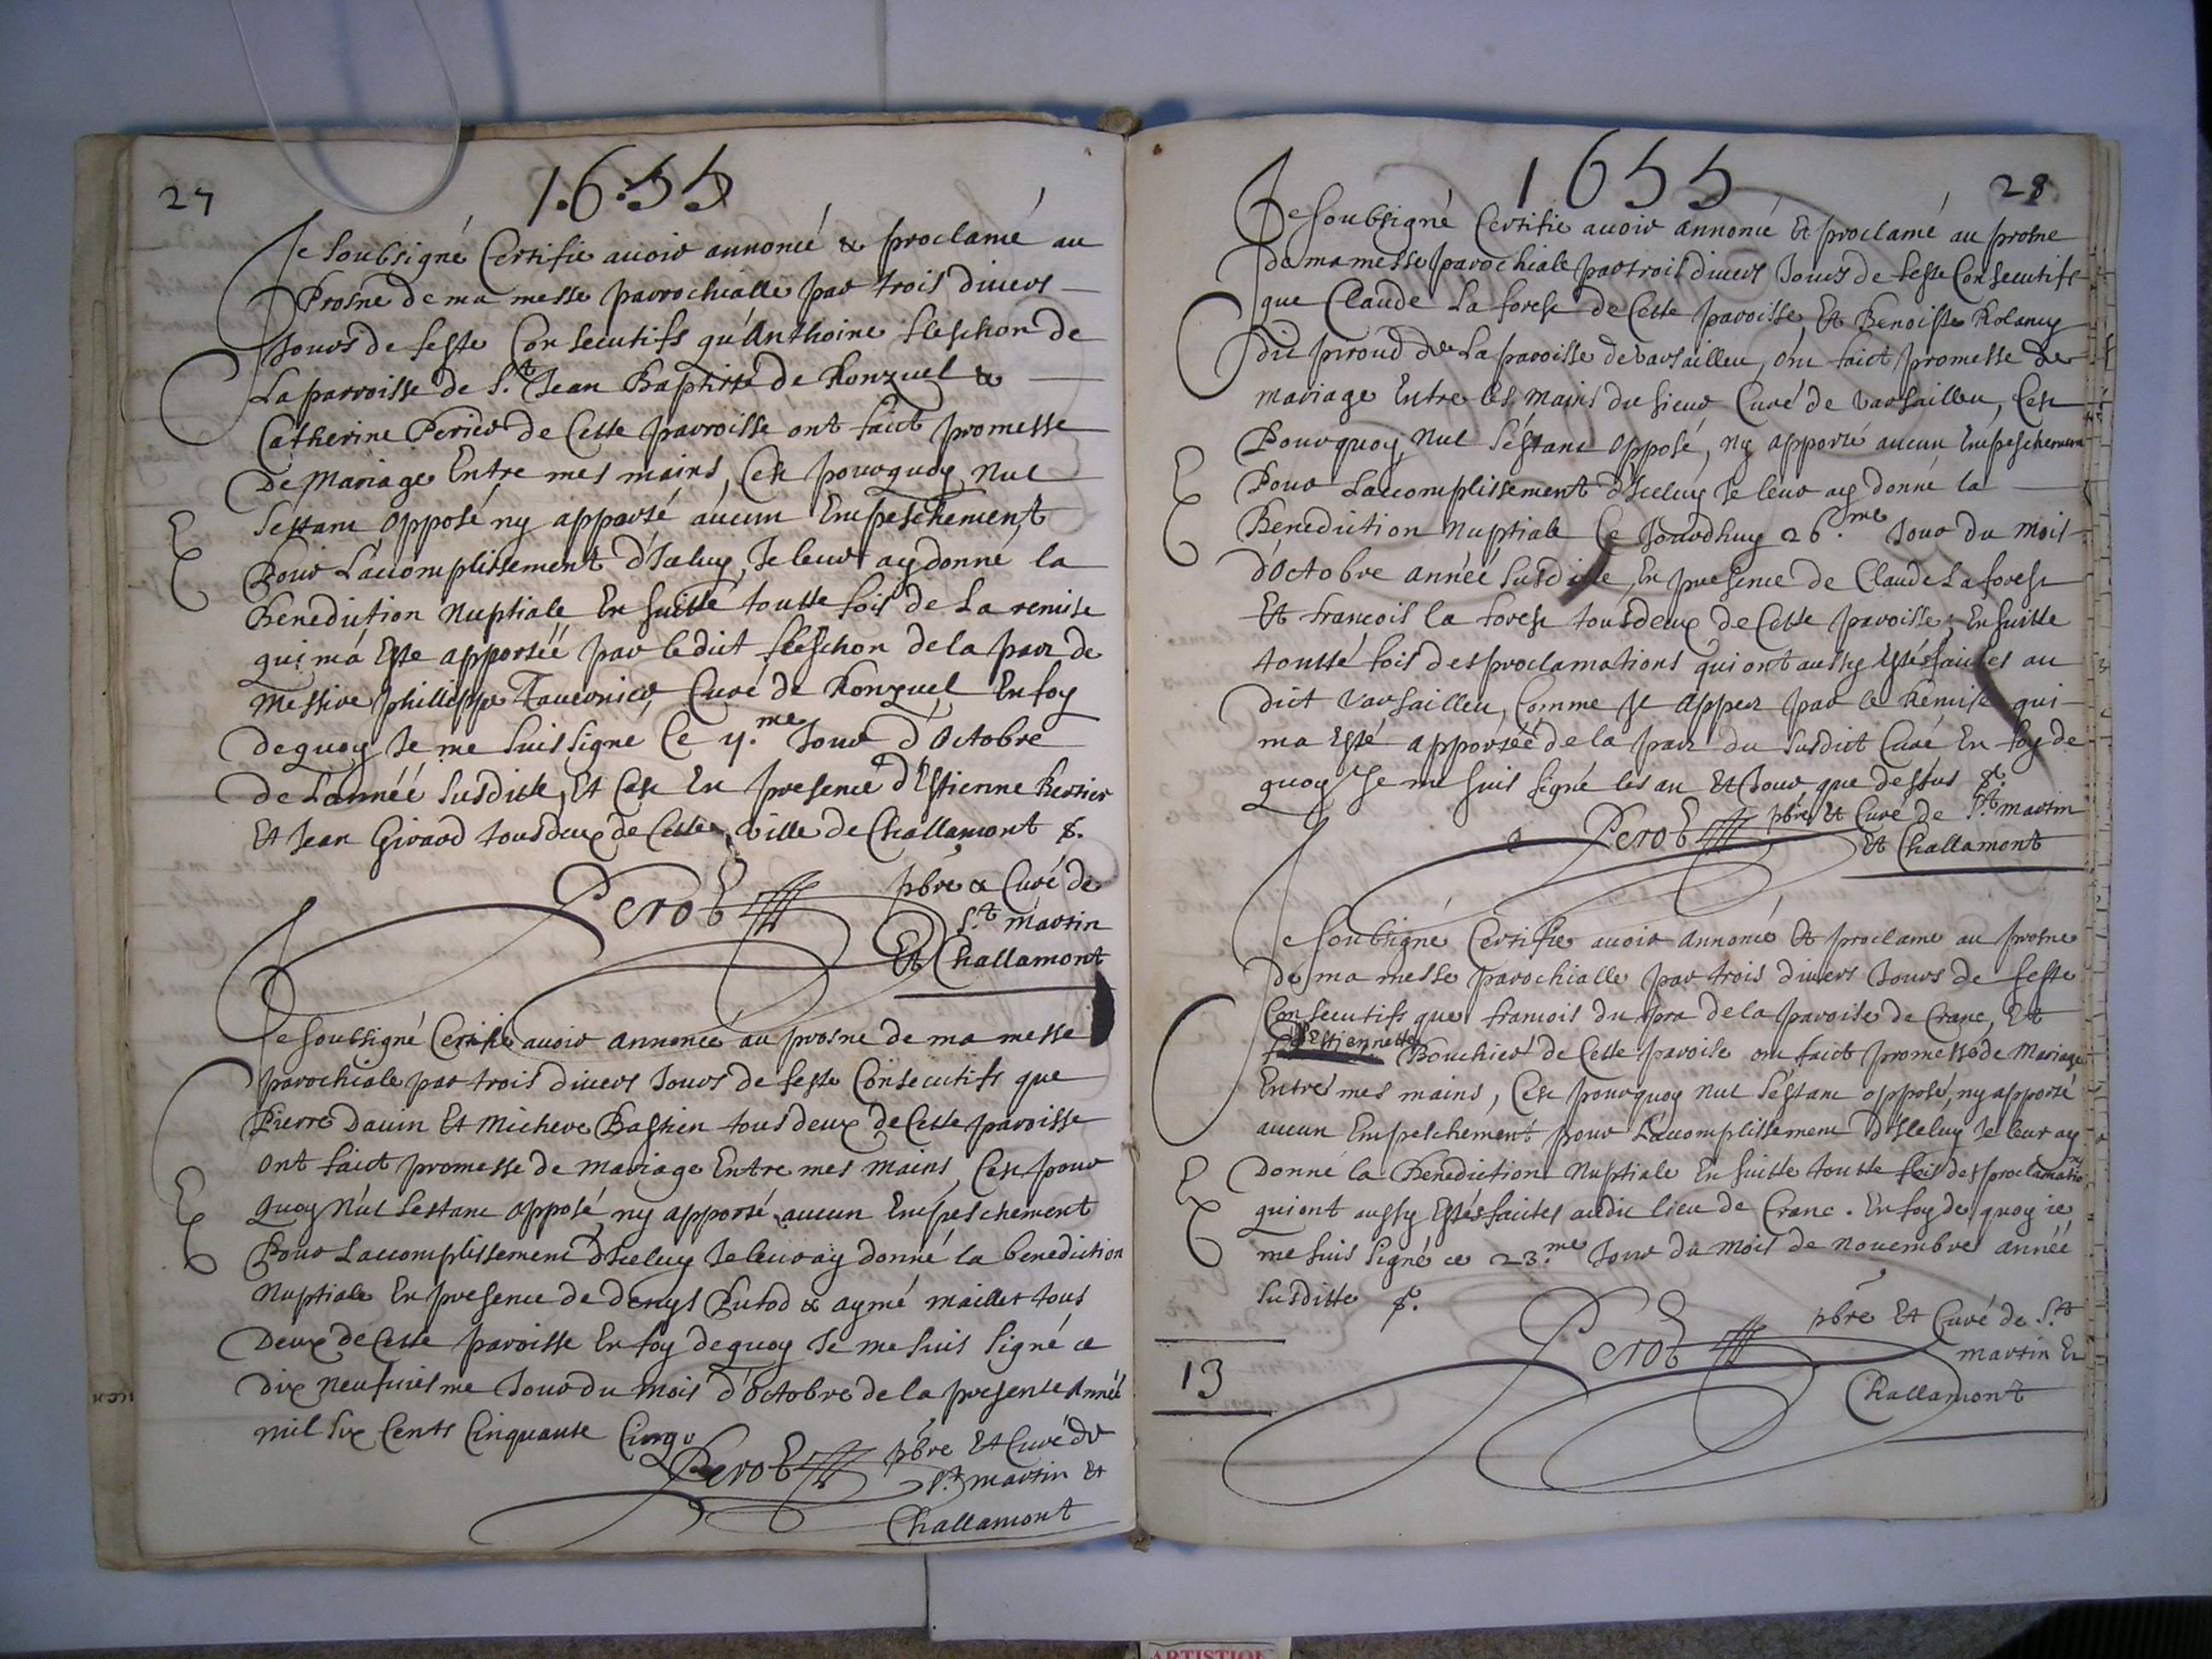 27
1.6.55
Je soubsigné Certifie auoir annoncé & proclamé au
Prosne de ma messe parrochialle par trois diuers
Jours de feste Consecutifs qu'Anthoine fleschon de
La parroisse de St. Jean Baptiste de Ronzuel &
Catherine Perier de Cette parroisse ont faict promesse
De Mariage Entre mes mains, Cest pourquoy Nul
sestant opposé ny apporté aucun Empeschement
Pour L'accomplissement d'Iceluy, Je leur ay donné la
Benediction Nuptiale En suitte toutte fois de La remise
qui m'a Esté apportéé par ledict fleschon de la part de
Messire phillippe Cure de Ronzuel, En foy
de quoy Je me suis signe Ce me Jour d'Octobre
de L'annéé susditte, Et Cest En presence d'Estienne Bertier
Et Jean Girard tousdeux de Cette ville de Challamont &.
Perot pbre & Curé de
St. martin
Et Challamont
Je soubsigné Certifie auoir annoncé au prosne de ma messe
parochiale par trois diuers Jours de feste Consecutifs que
Pierre Dauin Et Micheve Bastien tous deux de Cette paroisse
ont faict promesse de mariage Entre mes mains, Cest pour
quoy Nul sestant opposé, ny apporté aucun Empeschement
Pour L'accomplissement d'Iceluy Je leur ay donné la benediction
Nuptiale En presence de denys Putod & aymé maillet tous
Deux de Cette paroisse En foy de quoy Je me suis signé ce
dix neufuiesme Jour du mois d'Octobre de la presente Année
mil six Cents Cinquante Cinq
Perot pbre Et Curé de
St. martin Et
Challamont
1655
28
Je soubsigné Certifie auoir annoncé Et proclamé au prosne
de ma messe parochiale par trois diuers Jours de feste Consecutifs
que Claude La forest de Cette paroisse, Et Benoiste Rolancy
dit piroud de La paroisse de Varsailleu, ont faict promesse de
mariage Entre les mains du sieur Curé de Varsailleu, Cest
Pourquoy, Nul s'estant opposé, ny apporté aucun Empeschement
Pour L'accomplissement d'Iceluy Je leur ay donné la
Benediction Nuptiale Ce Jourdhuy 26.me Jour du mois
d'Octobre année susditte, En presence de Claude La forest
Et francois la forest tousdeux de Cette paroisse, En suitte
toutte fois des proclamations qui ont aussy Estés faictes au
dict Varsailleu, Comme Il appert par le Remise qui
ma Esté apportéé de la part du susdict Curé En foy de
quoy Je me suis signé les an Et Jour que dessus &.
Perot pbre Et Curé de St. martin
Et Challamont
Je soubsigné Certifie auoir annoncé Et proclame au prosne
de ma messe parochialle par trois diuers Jours de feste
Consecutifs que francois du pra de la paroise de Cranc, Et
Estiennette Bouchier de Cette paroise ont faict promesse de Mariage
Entre mes mains, Cest pourquoy Nul s'estant opposé, ny apporté
aucun Empeschement pour L'accomplissement d'Iceluy Je leur ay
Donné la Benediction Nuptiale En suitte toutte fois des proclamations
qui ont aussy Estés faictes audit lieu de Cranc. En foy de quoy ie
me suis signé ce 23.me Jour du mois de nouembre année
susditte &.
Perot pbre Et Curé de St.
martin Et
Challamont
13
ARTISTION